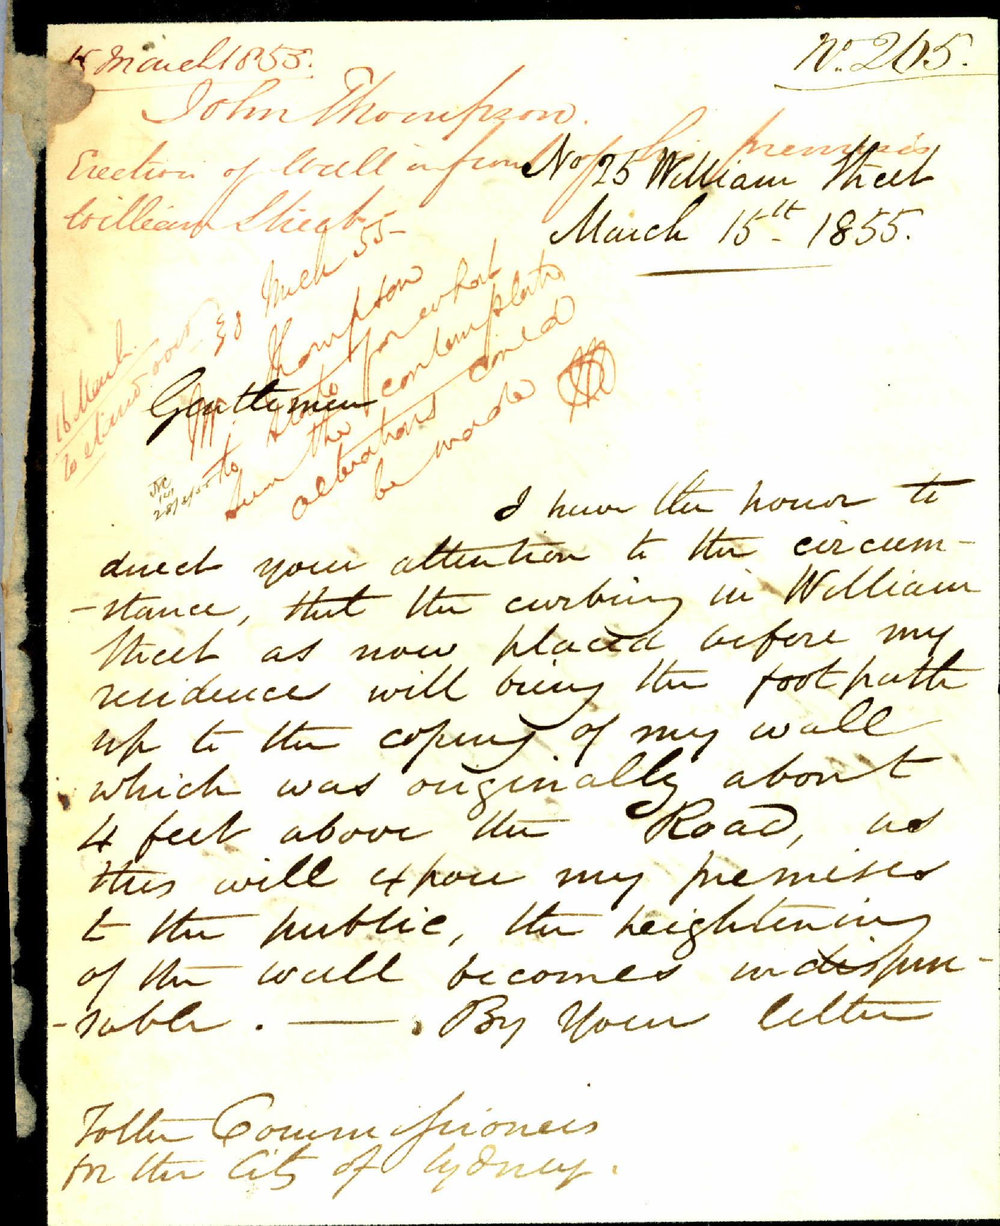 15 March 1855.
No. 265.
John Thompson.
Erection of Wall in front of his premises
William Street
No 25 William Street
March 15th - 1855.
30 March 55-
Mr Thompson
to state for what
sum the contemplated
alterations could
be made
16 March
Gentlemen
I have the honor to
direct your attention to the circum-
-stance, that the curbing in William
Street as now placed before my
residence will bring the footpath
up to the coping of my wall
which was originally about
4 feet above the Road, as
this will expose my premises
to the public, the heightening
of the wall becomes indispen-
-sable. —— . By Your letter
To the Commissioners
for the City of Sydney.